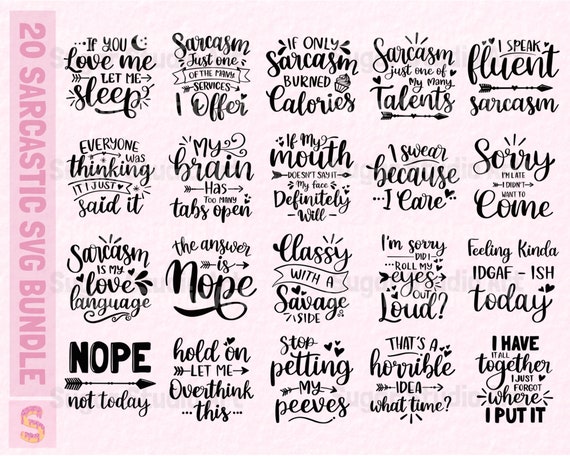 20 SARCASTIC SVG BUNDLE
IF YOU
Love me
LET ME
sleep?
Sarcasm
Just one
OF THE MANY
SERVICES
I Offer
IF ONLY
Sarcasm
BURNED
Calories
Sarcasm
Just one of
My many
Talents
I SPEAK
fluent
sarcasm
EVERYONE
was
thinking
it I just
said it
My
brain
Has
TOO MANY
tabs open
If My
mouth
DOESN'T SAY IT
My face
Definitely
Will
I swear
because
I Care
Sorry
I'M LATE
I DIDN'T
WANT TO
Come
Sarcasm
IS MY
love
language
the answer
is
Nope
Classy
WITH A
Savage
SIDE
I'm sorry
DID I
ROLL MY
eyes
OUT
Loud?
Feeling Kinda
IDGAF - ISH
today
NOPE
not today
hold on
LET ME
Overthink
this
Stop
petting
MY
peeves
THAT'S A
horrible
IDEA
what time?
I HAVE
IT ALL
together
I JUST
FORGOT
where
I PUT IT
S